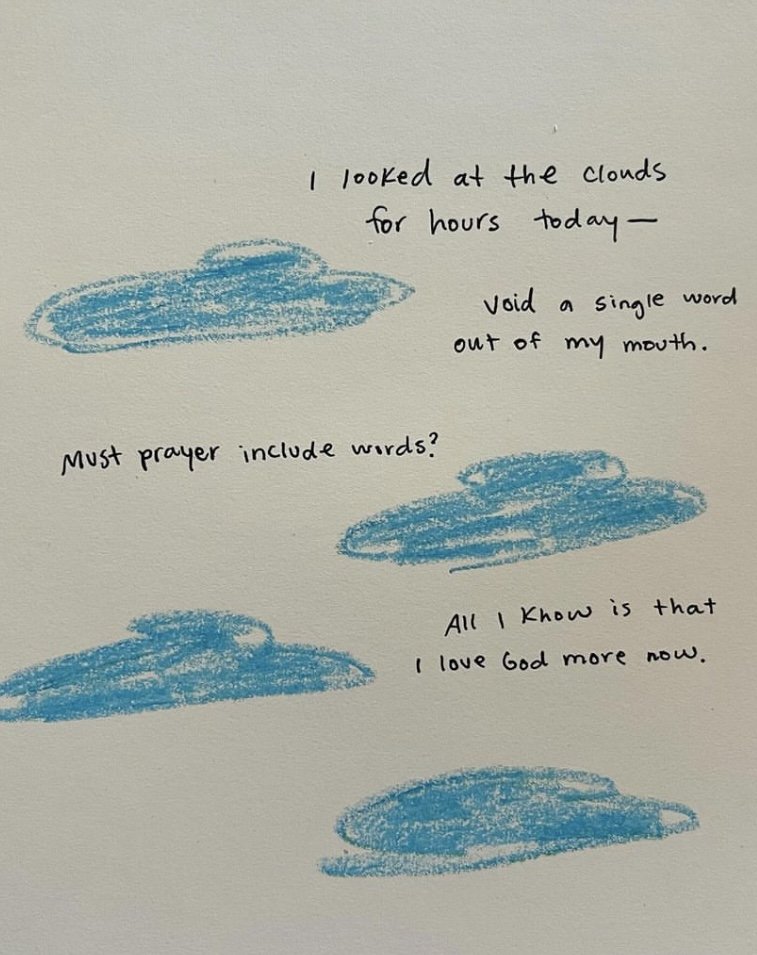 I looked at the clouds
for hours today—
void a single word
out of my mouth.
Must prayer include words?
All I know is that
I love God more now.